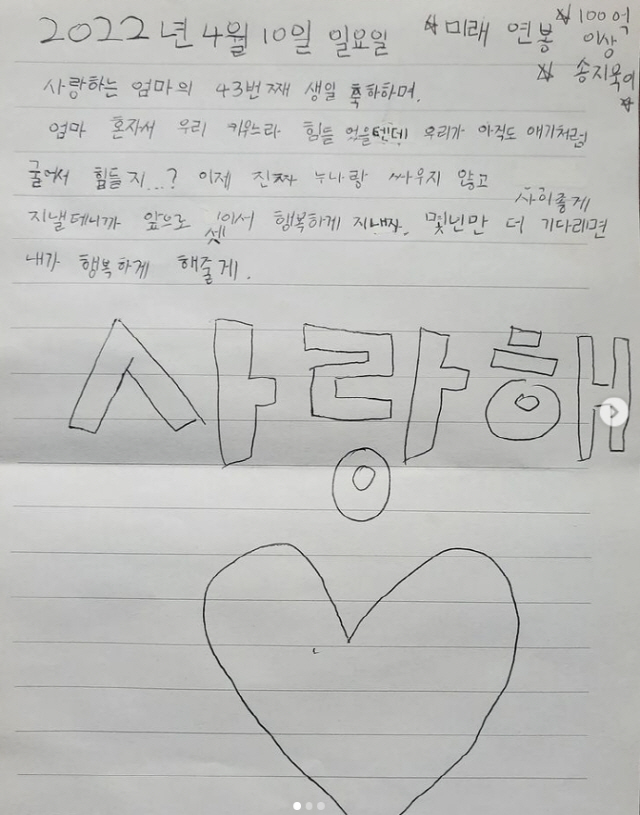 2022년 4월 10일 일요일 ☆미래 연봉 ☆100억
이상
☆ 송지욱이
☆
사랑하는 엄마의 43번째 생일 축하하며.
엄마 혼자서 우리 키우느라 힘들 었을텐데 우리가 아직도 애기처럼
굴어서 힘들지...? 이제 진짜 누나랑 싸우지 않고 사이좋게
지낼테니까 앞으로 셋이서 행복하게 지내자. 몇년만 더 기다려면
내가 행복하게 해줄게.
사랑해